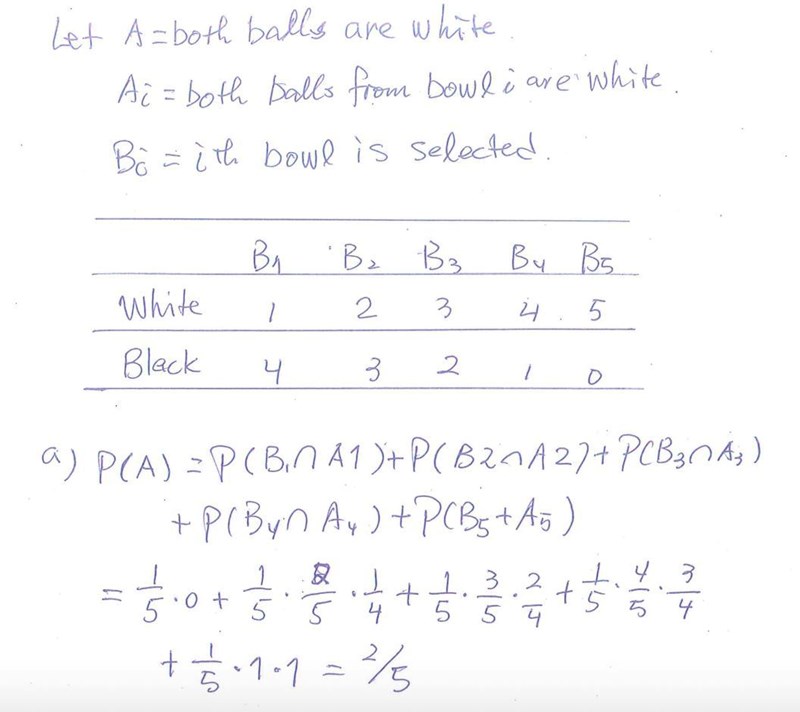 Let A = both balls are white.
Ai = both balls from bowl i are white.
Bi = ith bowl is selected.
B1 B2 B3 B4 B5
White 1 2 3 4 5
Black 4 3 2 1 0
a) P(A) = P(B1∩A1)+P(B2∩A2)+P(B3∩A3)
+ P(B4∩A4)+P(B5+A5)
= 1/5 · 0 + 1/5 · 2/5 · 1/4 + 1/5 · 3/5 · 2/4 + 1/5 · 4/5 · 3/4
+ 1/5 · 1 · 1 = 2/5